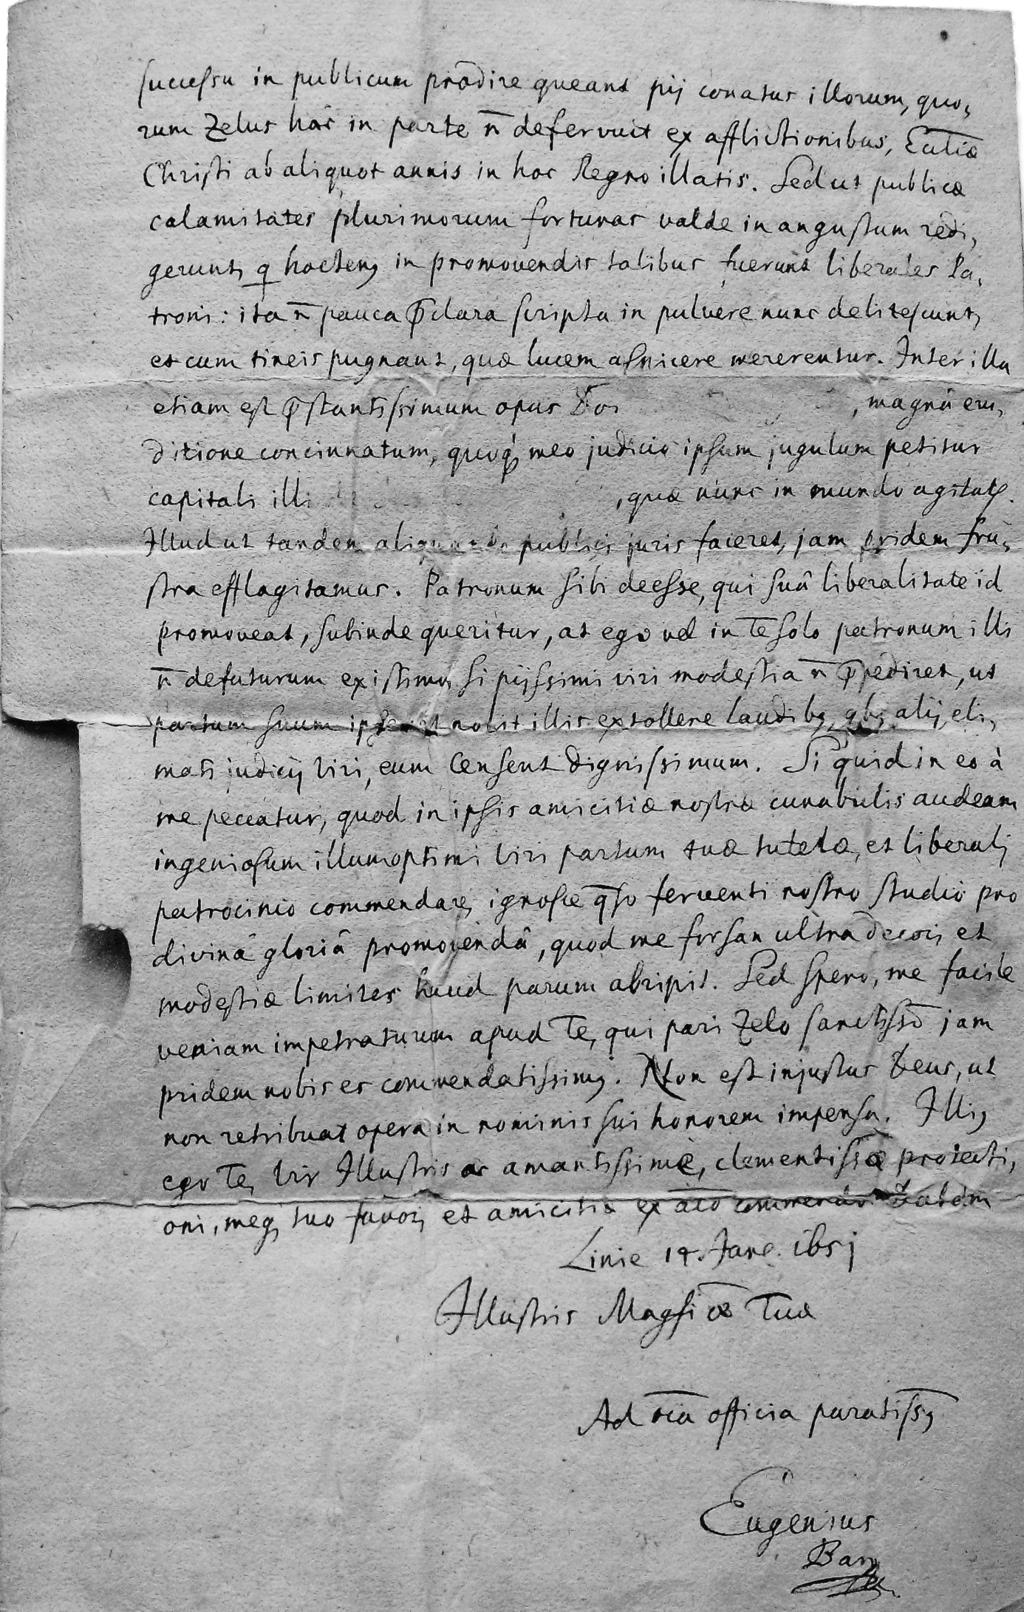 successu in publicum prodire queant pij conatus illorum, quo,
rum Zelus hâc in parte n̄ defervuit ex afflictionibus, Eccliæ
Christi ab aliquot annis in hoc Regno illatis. Sed ut publicæ
calamitates plurimorum fortunas valde in angustum redi,
gerunt, q hacten9 in promovendis talibus fuerunt liberales Pa,
troni: ita n̄ pauca p̄clara scripta in pulvere nunc delitescunt,
et cum tineis pugnant, quæ lucem aspicere mererentur. Inter illa
etiam est p̄stantissimum opus , magnâ eru,
ditione concinnatum, quoq; meo judicio ipsum jugulum petitur
capitali illi , quæ nunc in mundo agitat
Illud ut tandem aliquando publici juris faceret, jam pridem fru,
stra efflagitamus. Patronum sibi deesse, qui suâ liberalitate id
promoveat, subinde queritur, at ego vel in Te solo patronum illi
n̄ defuturum existimo, si pijssimi viri modestia n̄ p̄pediret, ut
partum suum nolit illis extollere laudib9, qb9 alij, eli,
mati judicij viri, eum censent dignissimum. Si quid in eo à
me peccatur, quod in ipsis amicitiæ nostræ cunabulis audeam
ingeniosum illum optimi viri partum tuæ tutelæ, et liberali
patrocinio commendare, ignosce q̄so ferventi nostro studio pro
divinâ gloriâ promovendâ, quod me forsan ultra decori et
modestiæ limites haud parum abripit. Sed spero, me facile
veniam impetraturum apud Te, qui pari Zelo sanctissō jam
pridem nobis es commendatissim9. Non est injustus Deus, ut
non retribuat opera in nominis sui honorem impensa. Illi9
ego Te, Vir Illustris ac amantissime, clementissæ protecti,
oni, meq; tuo favori et amicitiæ ex aīo commendo
14. Jan. 1651
Illustris Magficæ Tuæ
Ad oīa officia paratiss9
Eugenius